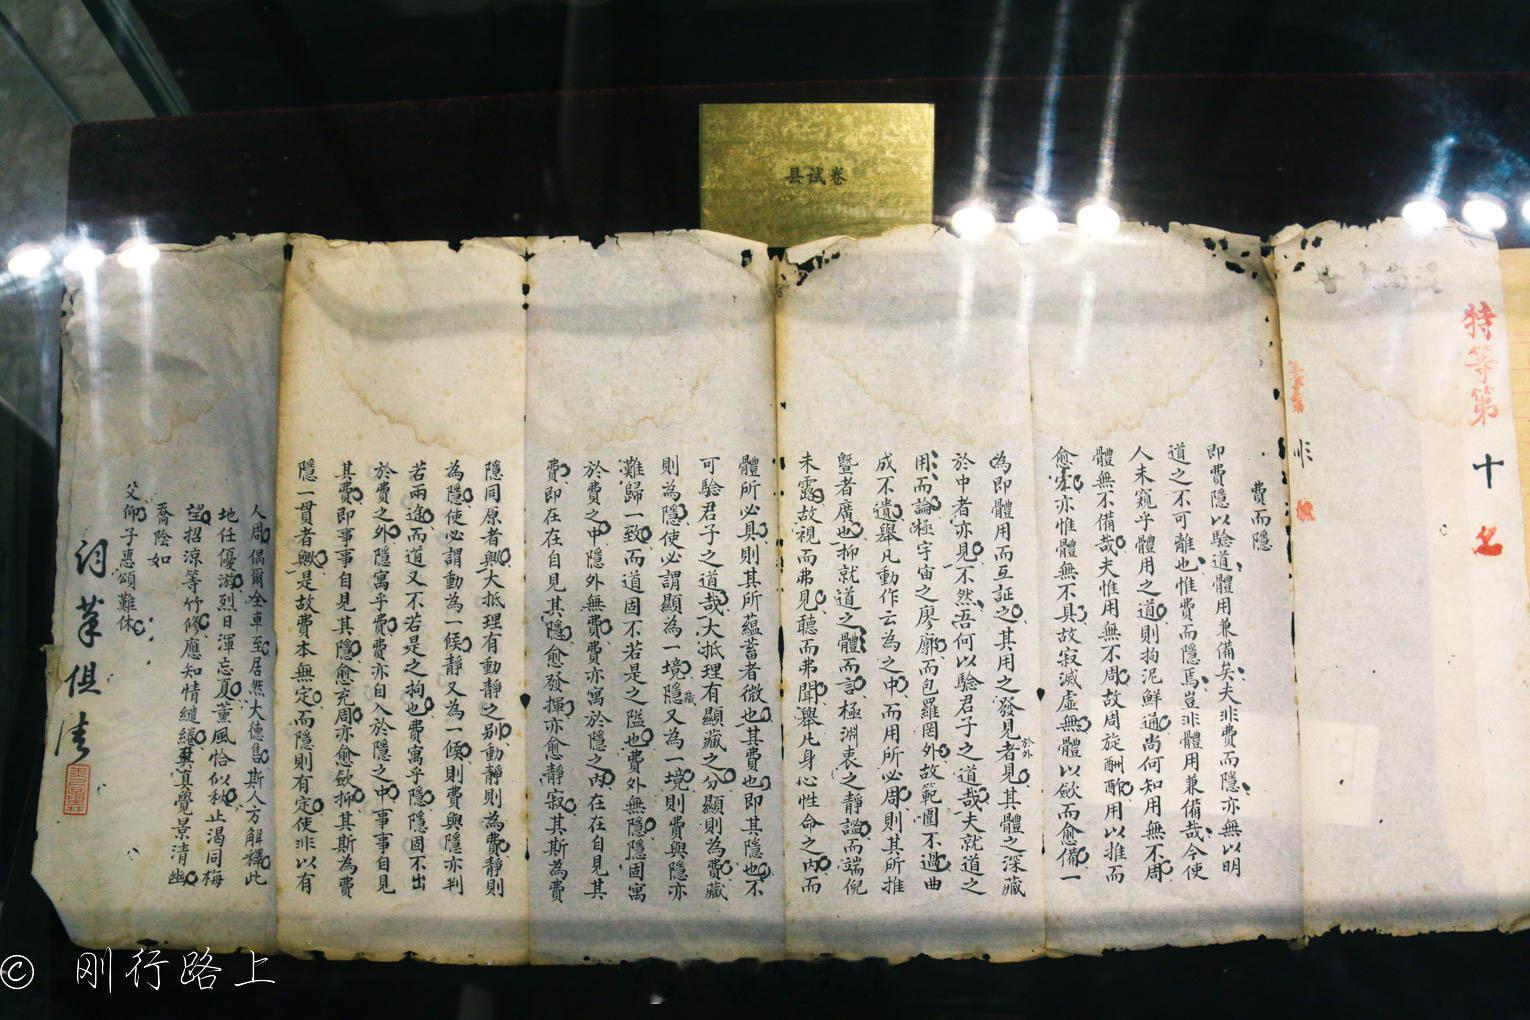 县试卷
特等第十名
费而隱
即費隱以驗道體用兼備矣夫非費而隱亦無以明
道之不可離也惟費而隱焉豈非體用兼備哉今使
人未窺乎體用之道則拘泥鮮通尚何知用無不周
體無不備哉夫惟用無不周故周旋酬酢用以推而
愈亦惟體無不具故寂滅虛無體以斂而愈備一
為即體用而互証之其用之發見者見其體之深藏
於外
於中者亦見不然吾何以驗君子之道哉夫就道之
用而論極宇宙之廖廓而包羅罔外故範圍不過曲
成不遺舉凡動作云為之中而用所必周則其所推
暨者廣也抑就道之體而言極淵衷之靜謐而端倪
未露故視而弗見聽而弗聞舉凡身心性命之內而
體所必具則其所蘊蓄者微也其費也即其隱也不
可驗君子之道哉大抵理有顯藏之分顯則為費藏
則為隱使必謂顯為一境隱又為一境則費與隱亦
藏
難歸一致而道固不若是之隘也費外無隱隱固寓
於費之中隱外無費費亦寓於隱之內在在自見其
費即在在自見其隱愈發揮亦愈靜寂其斯為費
隱同原者與大抵理有動靜之别動靜則為費靜則
為隱使必謂動為一候靜又為一候則費與隱亦判
若兩途而道又不若是之拘也費寓乎隱隱固不出
於費之外隱寓乎費費亦自入於隱之中事事自見
其費即事事自見其隱愈充周亦愈斂抑其斯為費
隱一貫者與是故費本無定而隱則有定使非以有
人周偶爾全車至居然大德售斯人方解穩此
地任優游烈日渾忘夏薰風恰似秋止渴同梅
望招涼等竹修應知情繾綣真覺景清幽
喬陰如
父仰子惠頌難休
詞筆俱清
© 刚行路上